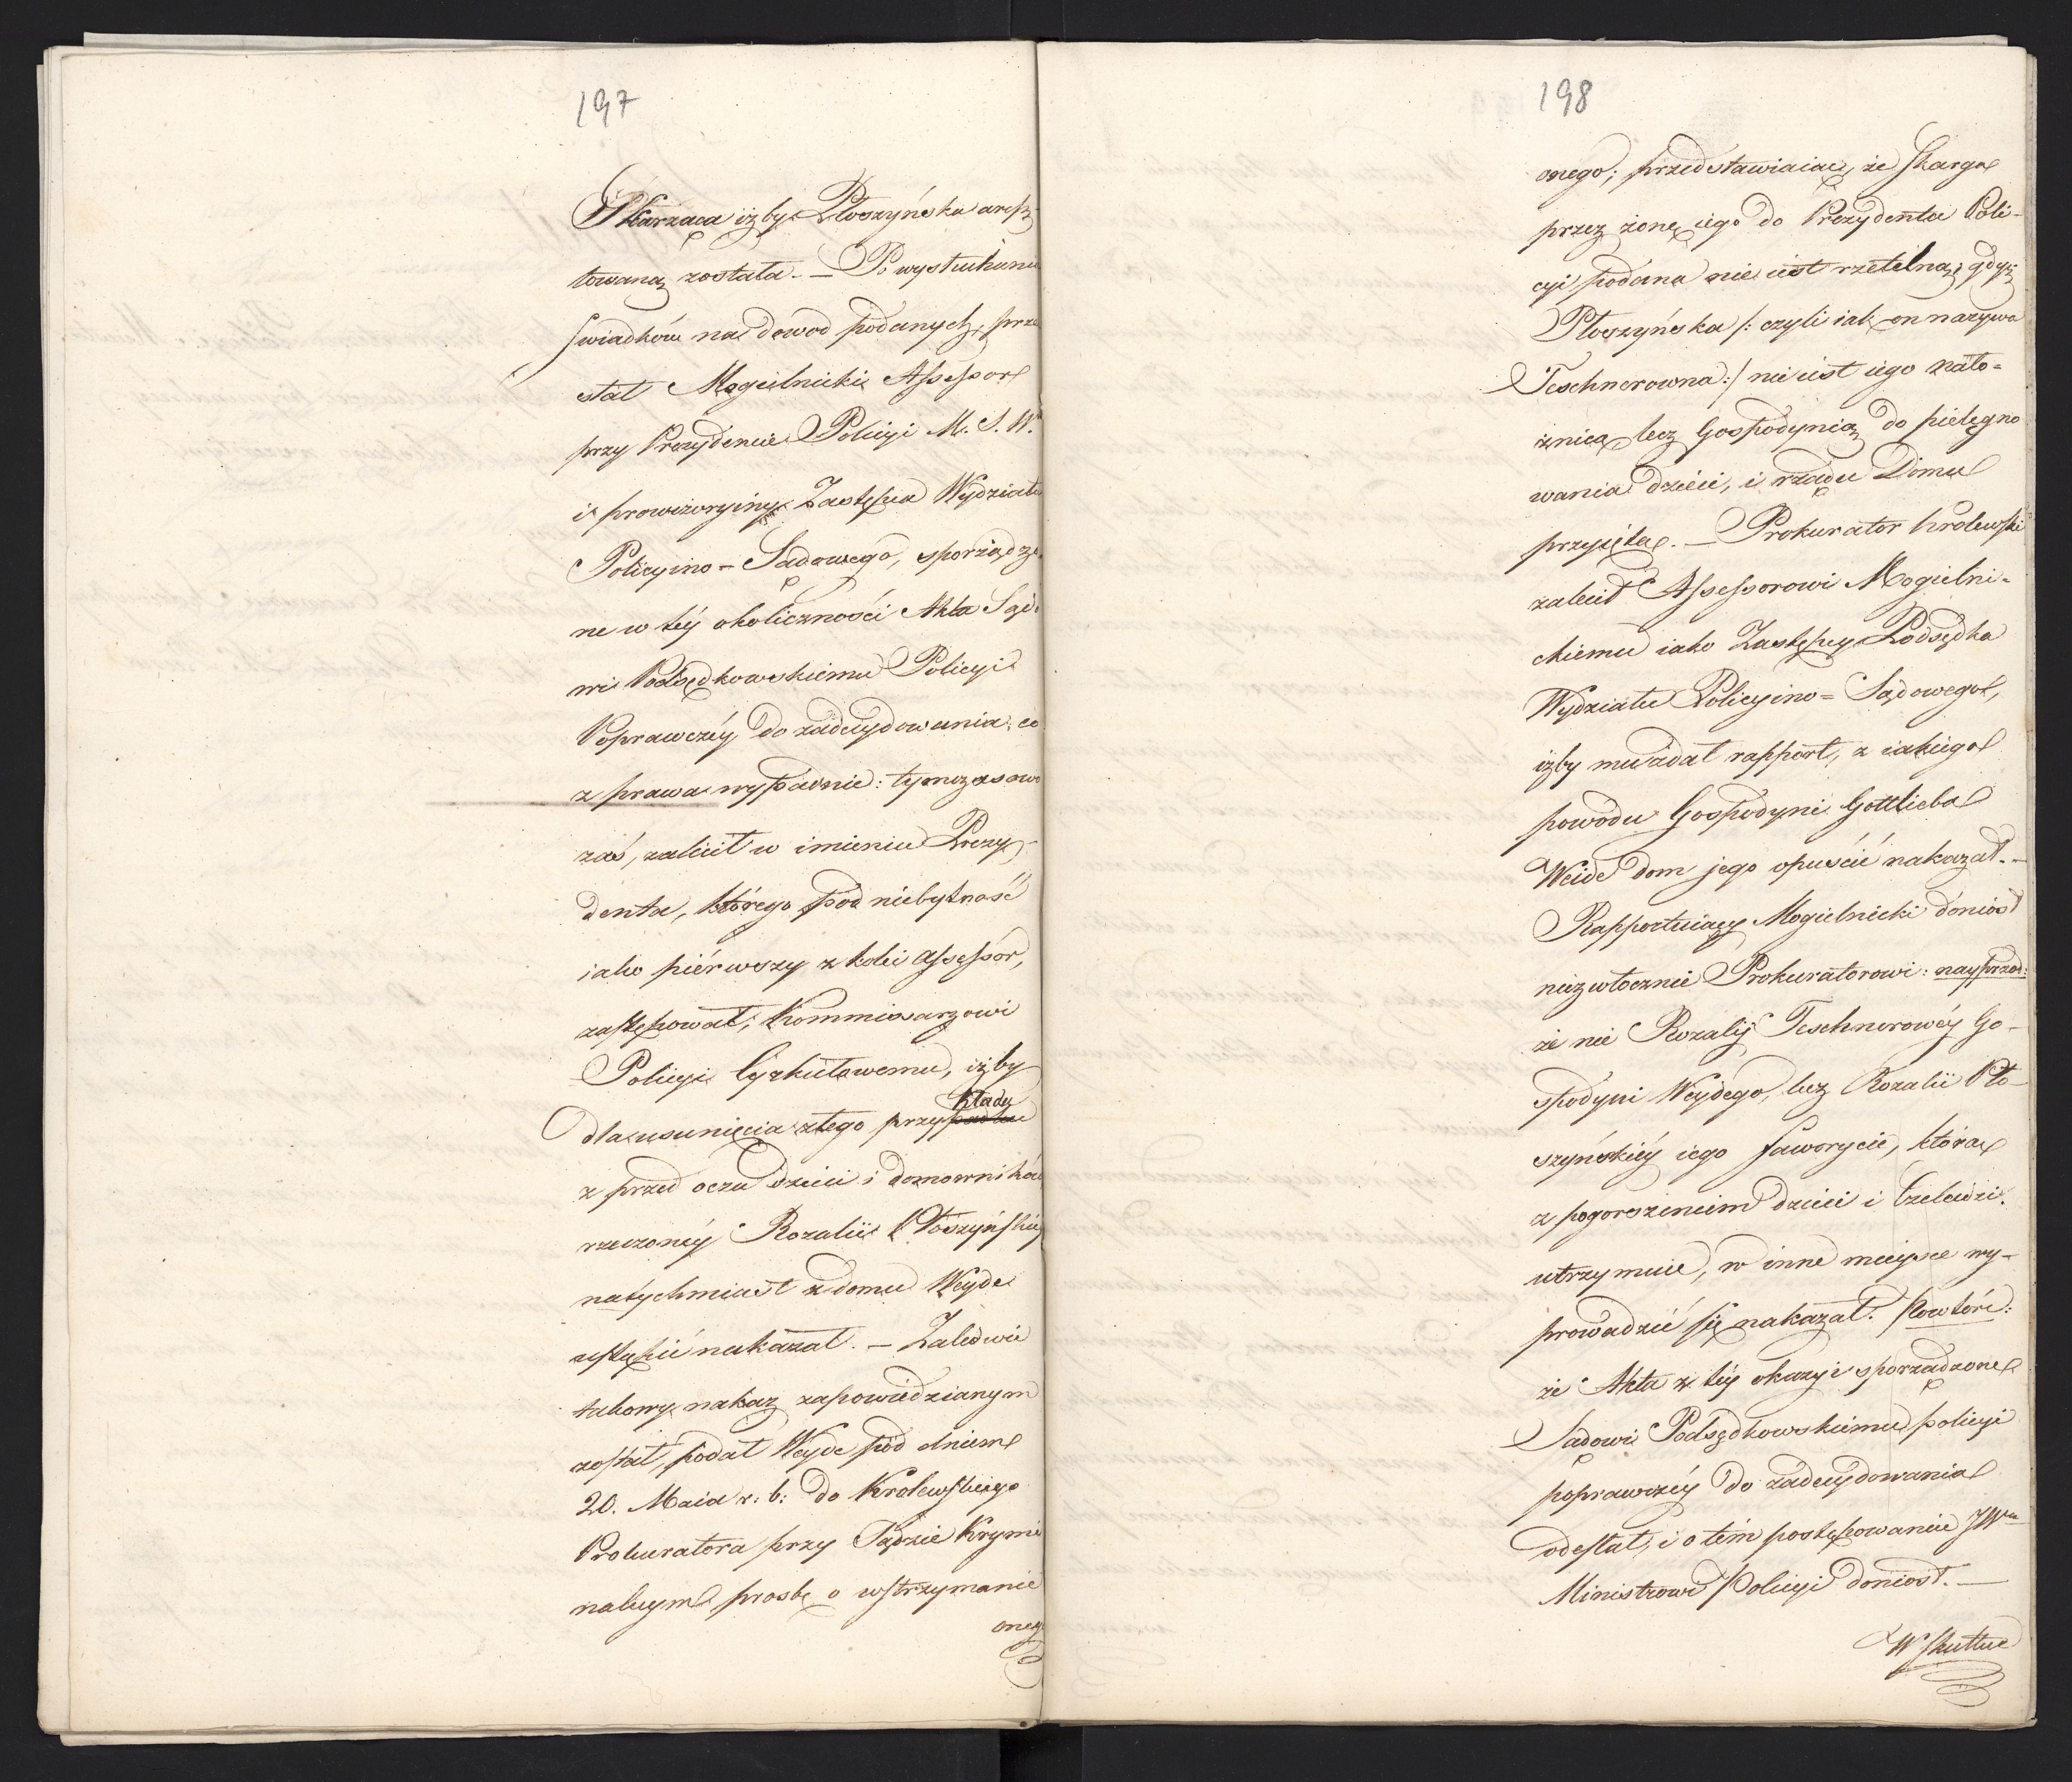 197
Skarząca iżby Płoszyńska aresz-
towaną została. — Po wysłuchaniu
świadków na dowod podanych, prze
słał Mogielnicki Assessor
przy Prezydencie Policyi M. S. W.
i prowizoryiny Zastępca Wydziału
Policyino - Sądowego, sporządzo
ne w téy okoliczności Akta Sądo
wi Podsędkowskiemu Policyi
Poprawczéy do zadecydowania co
z prawa wypadnie: tymczasowo
zaś, zalecił w imieniu Prezy-
denta, którego pod niebytność
iako piérwszy z kolei assessor,
zastępował; Kommissarzowi
Policyi Cyrkułowemu, iżby
dla usunięcia złego przypadku
kładu
z przed oczu dzieci i domowników
rzeczonéy Rozalii Płoszyńskiéy
natychmiast z domu Weyde
ustąpić nakazał. — Zaledwie
takowy nakaz zapowiedzianym
został, podał Weyde pod dniem
20. Maia r: b: do Krolewskiego
Prokuratora przy Sądzie Krymi
nalnym prosbę o wstrzymanie
oneg
198
onego; przedstawiaiąc, że skarga
przez żonę iego do Prezydenta Poli-
cyi podana nie iest rzetelną, gdyż
Płoszyńska /: czyli iak on nazywa
Teschnerowna :/ nie iest iego nało=
żnicą lecz Gospodynią do pielęgno
wania dzieci, i rządu Domu
przyiętą. — Prokurator Krolewski
zalecił Assessorowi Mogielni=
ckiemu iako Zastępcy Podsędka
Wydziału Policyino = Sądowego,
iżby mu zdał rapport, z iakiego
powodu Gospodyni Gottlieba
Weide dom jego opuścić nakazał. —
Rapportuiący Mogielnicki doniosł
niezwłocznie Prokuratorowi: nayprzod:
że nie Rozalij Teschnerowéy Go-
spodyni Weydego, lecz Rozalii Pło-
szyńskiéy iego faworycie, którą
z pogorszeniem dzieci i Czeladzi
utrzymuie, w inne mieysce wy-
prowadzić się nakazał. Powtóre:
że Akta z téy okazyi sporządzone
Sądowi Podsędkowskiemu policyi
poprawczéy do zadecydowania
odesłał, i o tém postępowaniu JWu
Ministrowi Policyi doniosł. —
W skutku